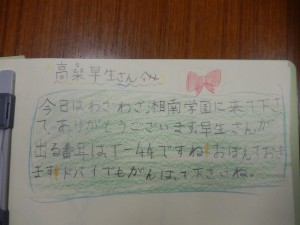 高桑早生さんへ
今日はわざわざ、湘南学園に来て下さ
て、ありがとうございます。早生さんが
出る番号は、T－44ですね おぼえておき
ます ドバイでもがんばって下さいね。